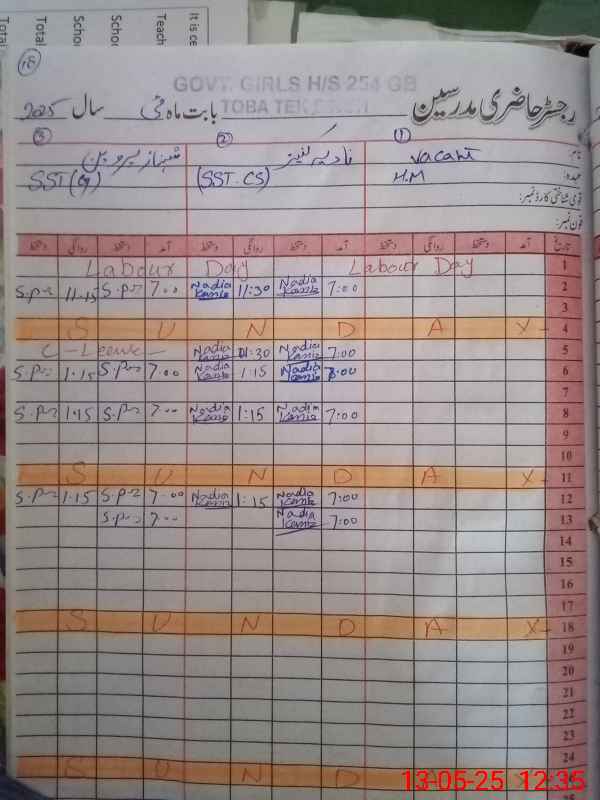 It is ce
Teach
Scho
Scho
Total
Total
18
GOVT. GIRLS H/S 254 GB
TOBA TEK
رجسٹر حاضری مدرسین بابت ماہ مئی سال 2025
① ② ③
نام: vacant نادیہ کنیز شہناز پروین
عہدہ: H.M (SST-CS) SST(G)
قومی شناختی کارڈ نمبر:
فون نمبر:
تاریخ آمد دستخط روانگی دستخط آمد دستخط روانگی دستخط آمد دستخط روانگی دستخط
Labour Day Labour Day 1
S.pr 11.15 S.pr 7.00 Nadia Kaniz 11:30 Nadia Kaniz 7:00 2
3
S U N D A Y 4
C-Leave Nadia Kaniz 11:30 Nadia Kaniz 7:00 5
S.pr 1.15 S.pr 7.00 Nadia Kaniz 1:15 Nadia Kaniz 7:00 6
7
S.pr 1.15 S.pr 7.00 Nadia Kaniz 1:15 Nadia Kaniz 7:00 8
9
10
S U N D A Y 11
S.pr 1.15 S.pr 7.00 Nadia Kaniz 1:15 Nadia Kaniz 7:00 12
S.pr 7.00 Nadia Kaniz 7:00 13
14
15
16
17
S U N D A Y 18
19
20
21
22
23
24
S U N D
13-05-25 12:35